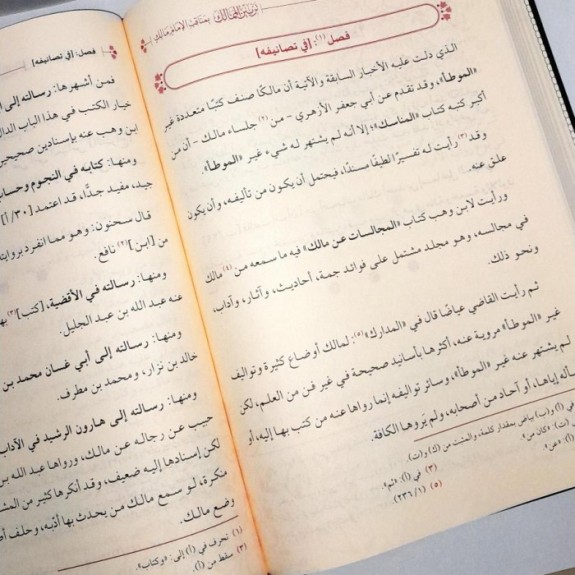 تزيين الممالك بمناقب الإمام مالك
فصل(١): [في تصانيفه]
الذي دلت عليه الأخبار السابقة والآتية أن مالكًا صنف كتبًا متعددة غير
«الموطأ»، وقد تقدم عن أبي جعفر الأزهري - من(٢) جلساء مالك - أن من
أكبر كتبه كتاب «المناسك»، إلا أنه لم يشتهر له شيء غير «الموطأ».
وقد(٣) رأيت له تفسيرًا لطيفًا مسندًا، فيحتمل أن يكون من تأليفه، وأن يكون
علق عنه.
ورأيت لابن وهب كتاب «المجالسات عن مالك» فيه ما سمعه من(٤) مالك
في مجالسه، وهو مجلد مشتمل على فوائد جمة، أحاديث، وآثار، وآداب،
ونحو ذلك.
ثم رأيت القاضي عياضًا قال في «المدارك»(٥): لمالك أوضاع كثيرة وتواليف
غير «الموطأ» مروية عنه، أكثرها بأسانيد صحيحة في غير فن من العلم، لكن
لم يشتهر عنه غير «الموطأ»، وسائر تواليفه إنما رواها عنه من كتب بها إليه، أو
سأله إياها، أو آحاد من أصحابه، ولم يَروها الكافة.
في (أ) و(ب) بياض بمقدار كلمة، والمثبت من (ك) و(ت)
(ت): «كان من».
(٣) في (أ): «ثم».
(أ): «عن».
(٥) (١/٢٣٦)
فصل: [في تصانيفه]
فمن أشهرها: رسالته إلى
خيار الكتب في هذا الباب الدالة
ابن وهب عنه بإسنادين صحيحين
ومنها: كتابه في النجوم وحساب
جيد، مفيد جدًّا، قد اعتمد [٣٠/أ]
قال سحنون: وهو مما انفرد بروايته
من [ابن](٢) نافع.
ومنها: رسالته في الأقضية، [كتب](٣) بها
عنه عبد الله بن عبد الجليل.
ومنها: رسالته إلى أبي غسان محمد بن
خالد بن نزار، ومحمد بن مطرف.
ومنها: رسالته إلى هارون الرشيد في الآداب
حبيب عن رجاله عن مالك، ورواها عبد الله بن
لكن إسنادها إليه ضعيف، وقد أنكرها كثير من
منكرة، لو سمع مالك من يحدث بها أدبه، وحلف
وضع مالك.
(١) تحرف في (أ) إلى: «وكتاب».
(٣) سقط من (أ).